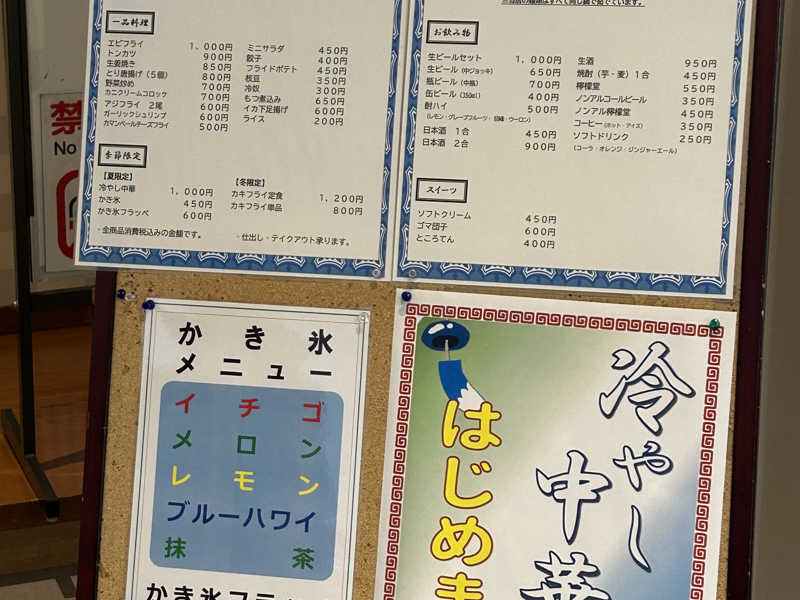 禁
No
一品料理
エビフライ 1,000円
トンカツ 900円
生姜焼き 850円
とり唐揚げ(5個) 800円
野菜炒め 700円
カニクリームコロッケ 700円
アジフライ 2尾 600円
ガーリックシュリンプ 600円
カマンベールチーズフライ 500円
ミニサラダ 450円
餃子 400円
フライドポテト 450円
枝豆 350円
冷奴 300円
もつ煮込み 650円
イカ下足揚げ 600円
ライス 200円
季節限定
【夏限定】
冷やし中華 1,000円
かき氷 450円
かき氷フラッペ 600円
【冬限定】
カキフライ定食 1,200円
カキフライ単品 800円
・全商品消費税込みの金額です。
・仕出し・テイクアウト承ります。
お飲み物
生ビールセット 1,000円
生ビール(中ジョッキ) 650円
瓶ビール(中瓶) 700円
缶ビール(350ml) 400円
酎ハイ 500円
日本酒 1合 450円
日本酒 2合 900円
生酒 950円
焼酎(芋・麦)1合 450円
檸檬堂 550円
ノンアルコールビール 350円
ノンアル檸檬堂 450円
コーヒー(ホット・アイス) 350円
ソフトドリンク 250円
(コーラ・オレンジ・ジンジャーエール)
スイーツ
ソフトクリーム 450円
ゴマ団子 600円
ところてん 400円
かき氷
メニュー
イチゴ
メロン
レモン
ブルーハワイ
抹茶
かき氷フラ
冷やし
中華
はじめま